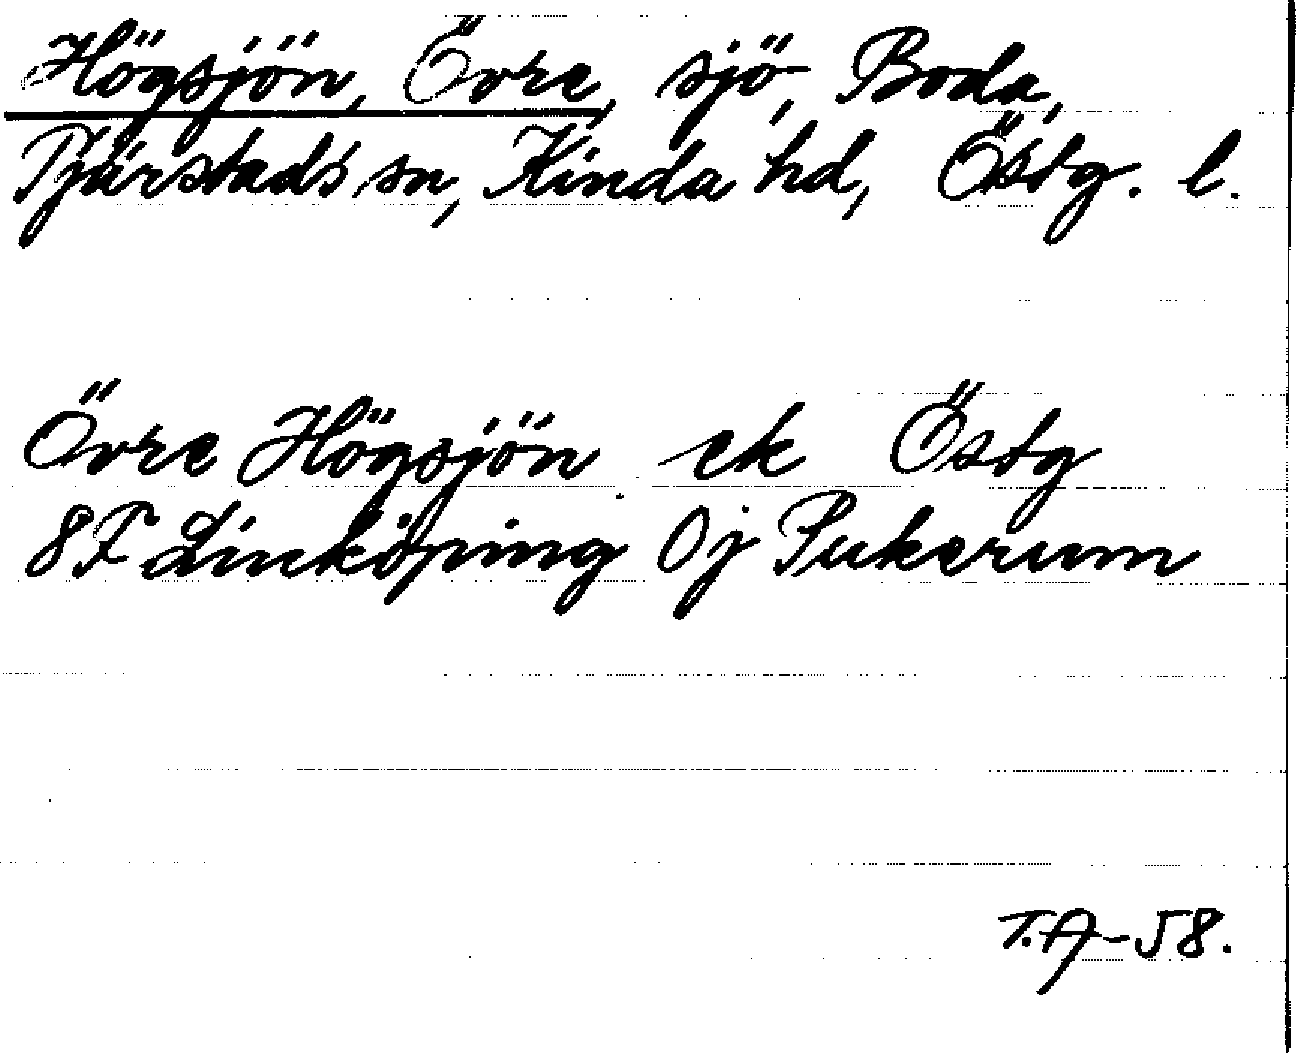 Högsjön, Övre, sjö, Boda,
Tjärstads sn, Kinda hd, Östg. l.
Övre Högsjön ek Östg
8F Linköping 0j Pukerum
T.A-58.